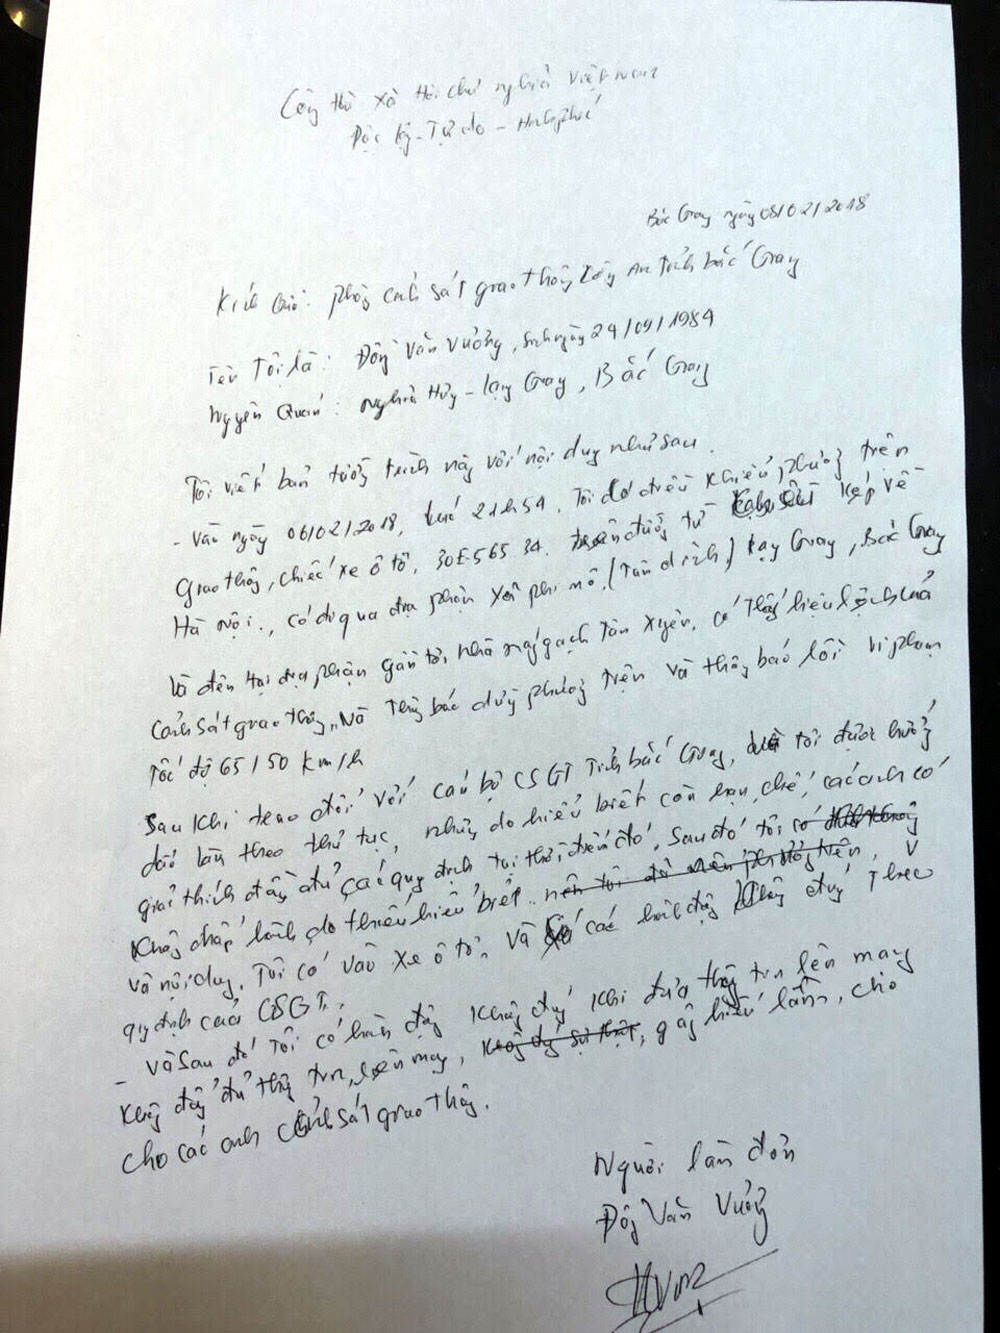 Cộng hò xã Hội chủ nghĩa Việt nam
Độc lập - Tự do - Hạnh phúc
Bắc Giang ngày 08/02/2018
Kính Gửi: phòng cảnh sát giao thông Công An tỉnh bắc Giang
Tên Tôi là: Đồng Văn Vưởng, sinh ngày 24/09/1984
Nguyên Quán: Nghĩa Hưng - Lạng Giang, Bắc Giang
Tôi viết bản tường trình này với nội dung như sau.
- Vào ngày 06/02/2018, lúc 21h54. Tôi có điều khiển phương trên
Giao thông, chiếc xe ô tô, 30E-565 34. đường từ kép về
Hà Nội., có đi qua địa phận phi mô. (Tân dĩnh) Lạng Giang, Bắc Giang
Và đến tại địa phận gần tới nhà máy gạch Tân Xuyên, có thấy hiệu lệnh của
Cảnh sát giao thông, Và dừng phương tiện và thông báo lỗi vi phạm
Tốc độ 65/50 km/h
Sau khi trao đổi với cán bộ CSGT Tỉnh bắc Giang, tôi được hướng
dẫn làm theo thủ tục, nhưng do hiểu biết còn hạn chế, các anh có
giải thích đầy đủ các quy định tại thời điểm đó, sau đó tôi có
Không chấp hành do thiếu hiểu biết. nên tôi đã trên phương tiện, V
và nội dung, Tôi có vào xe ô tô, và các hành động không đúng Theo
quy định của CSGT,
- Và sau đó Tôi có hành động không đúng khi đưa thông tin lên mạng
Không đầy đủ thông tin, lên mạng, không đúng sự thật, gây hiểu lầm, cho
cho các anh Cảnh sát giao thông.
Người làm đơn
Đồng Văn Vưởng